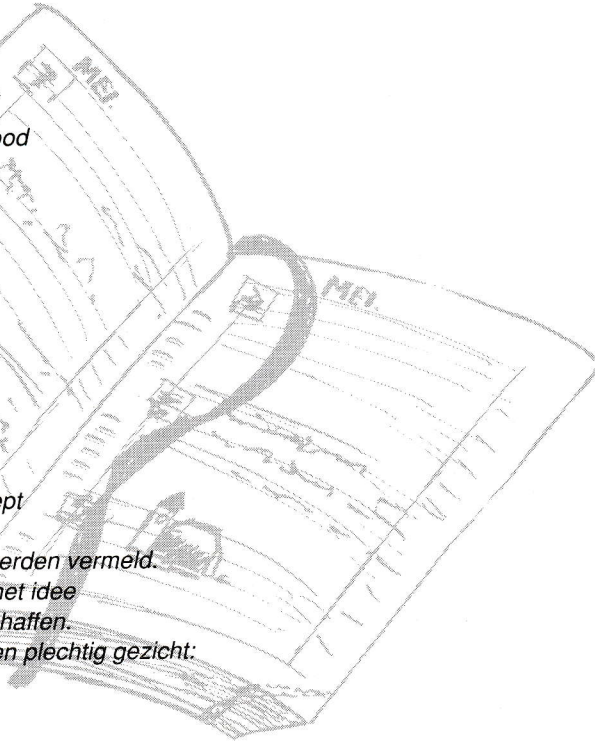 MEI.
ood
MEI.
ept
erden vermeld.
het idee
haffen.
en plechtig gezicht: